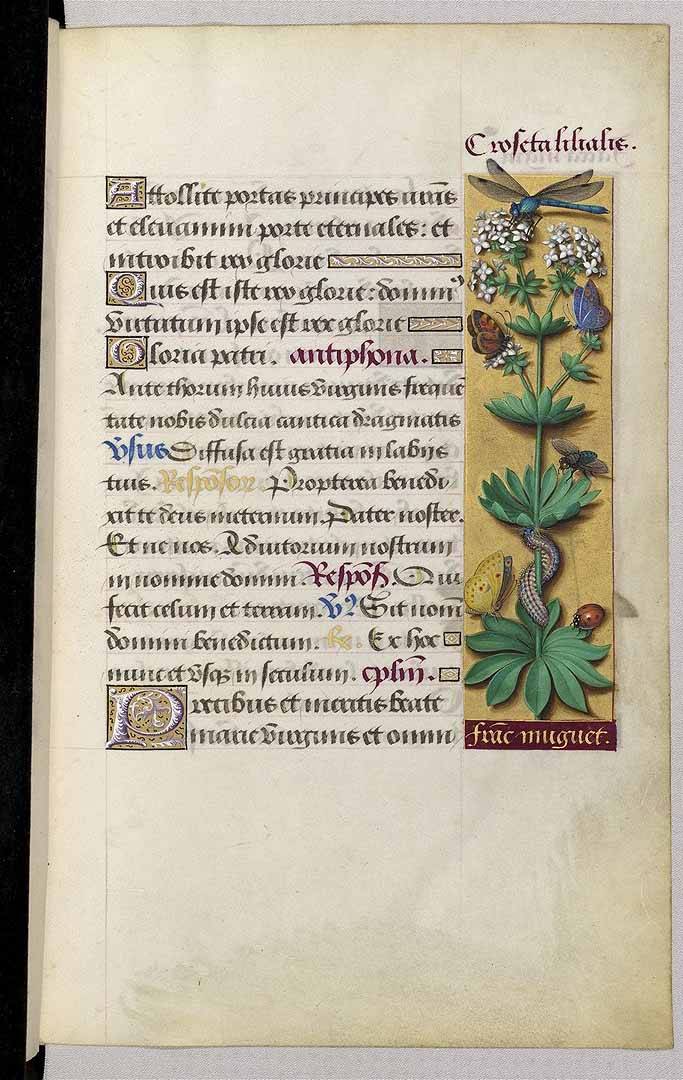 Croseta lilialis.
Attollite portas principes urãs
et elevamini porte eternales: et
introibit rex glorie
Quis est iste rex glorie: domin⁹
virtutum ipse est rex glorie
Gloria patri. antiphona.
Ante thorum huius virginis freque
tate nobis dulcia cantica dragmatis
Vsus Diffusa est gratia in labijs
tuis. Responson. Propterea benedi
xit te deus ineternum. Pater noster.
Et ne nos. Adiutorium nostrum
in nomine domini. Respoñ. Qui
fecit celum et terram. V? Sit nom̃
domini benedictum. R. Ex hoc
nunc et vsq; in seculum. cplm̃.
Precibus et meritis beate
marie virginis et omni
frãc muguet.